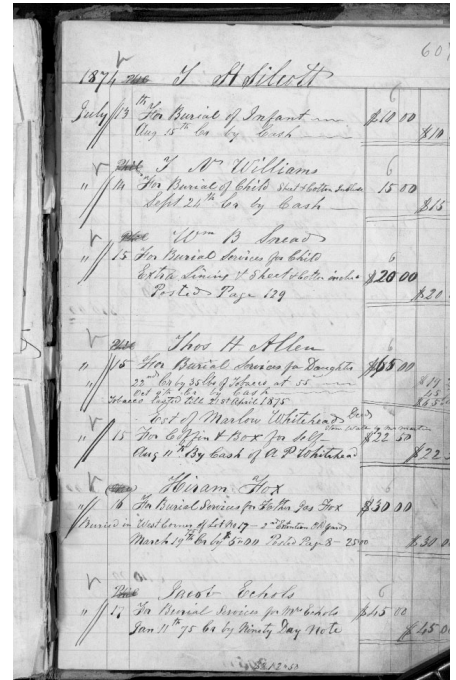 607
1874 T H Silcott
July 13th For Burial of Infant $10 00
Aug 15th Cr by Cash $10
Paid T N Williams
" 14 For Burial of Child Sheet & Cotton 15 00
Sept 24th Cr by Cash $15
Wm B Snead
" 15 For Burial Services for Child
Extra Lining & Sheet & Cotton $20 00
Posted Page 129 $20
Thos H Allen
" 15 For Burial Services for Daughter $65 00
22nd Cr by 35 lbs of Tobacco at 55
Oct 9th Cr by Cash
Tobacco 21st April 1875
Est of Marlow Whitehead Decd
" 15 For Coffin & Box for Self $22 50
Aug 11th By Cash of A P Whitehead $22
Hiram Fox
" 16 For Burial Services for Father Jas Fox $30 00
Buried in West Corner of Lot No 17 2nd
March 19th Cr by 5.00 Posted Page 8 - 25.00 $30 00
Jacob Echols
" 17 For Burial Services for Mrs Echols $45 00
Jan 11th 75 Cr by Ninety Day Note $45 00